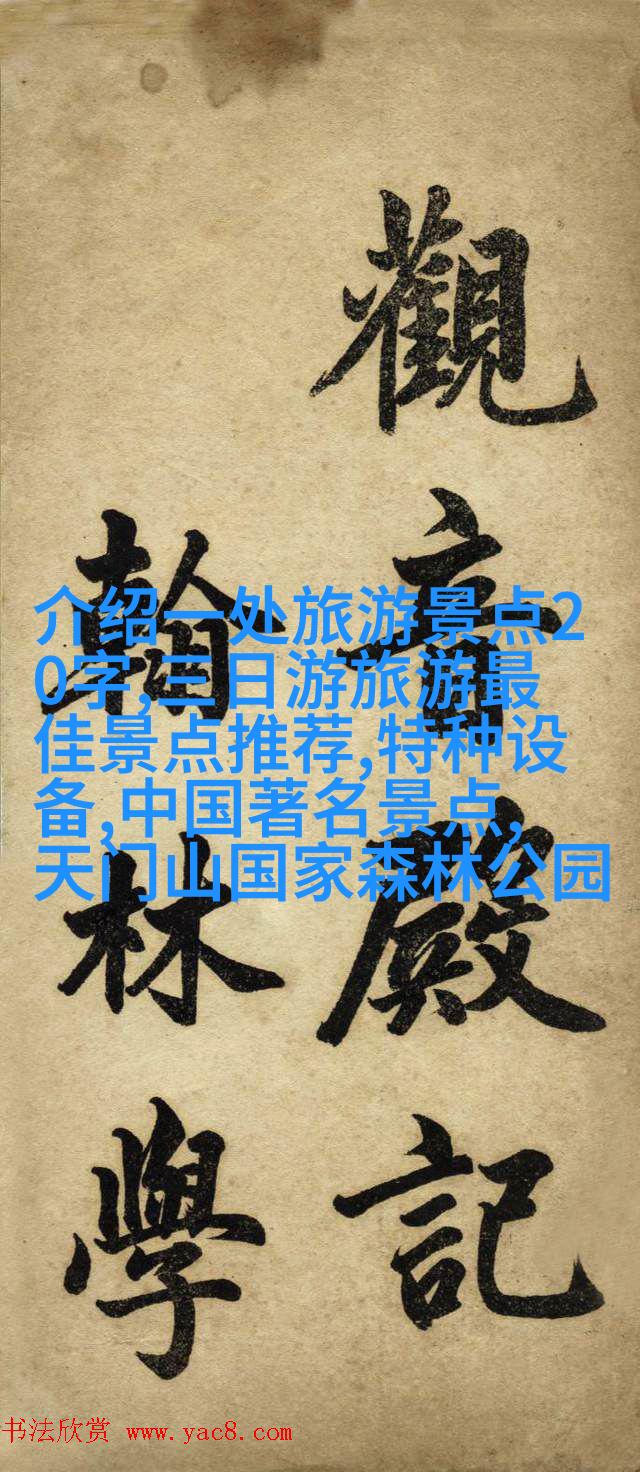 觀音殿記
翰林學
介绍一处旅游景点2
0字,三日游旅游最
佳景点推荐,特种设
备,中国著名景点,
天门山国家森林公园
书法欣赏 www.yac8.com